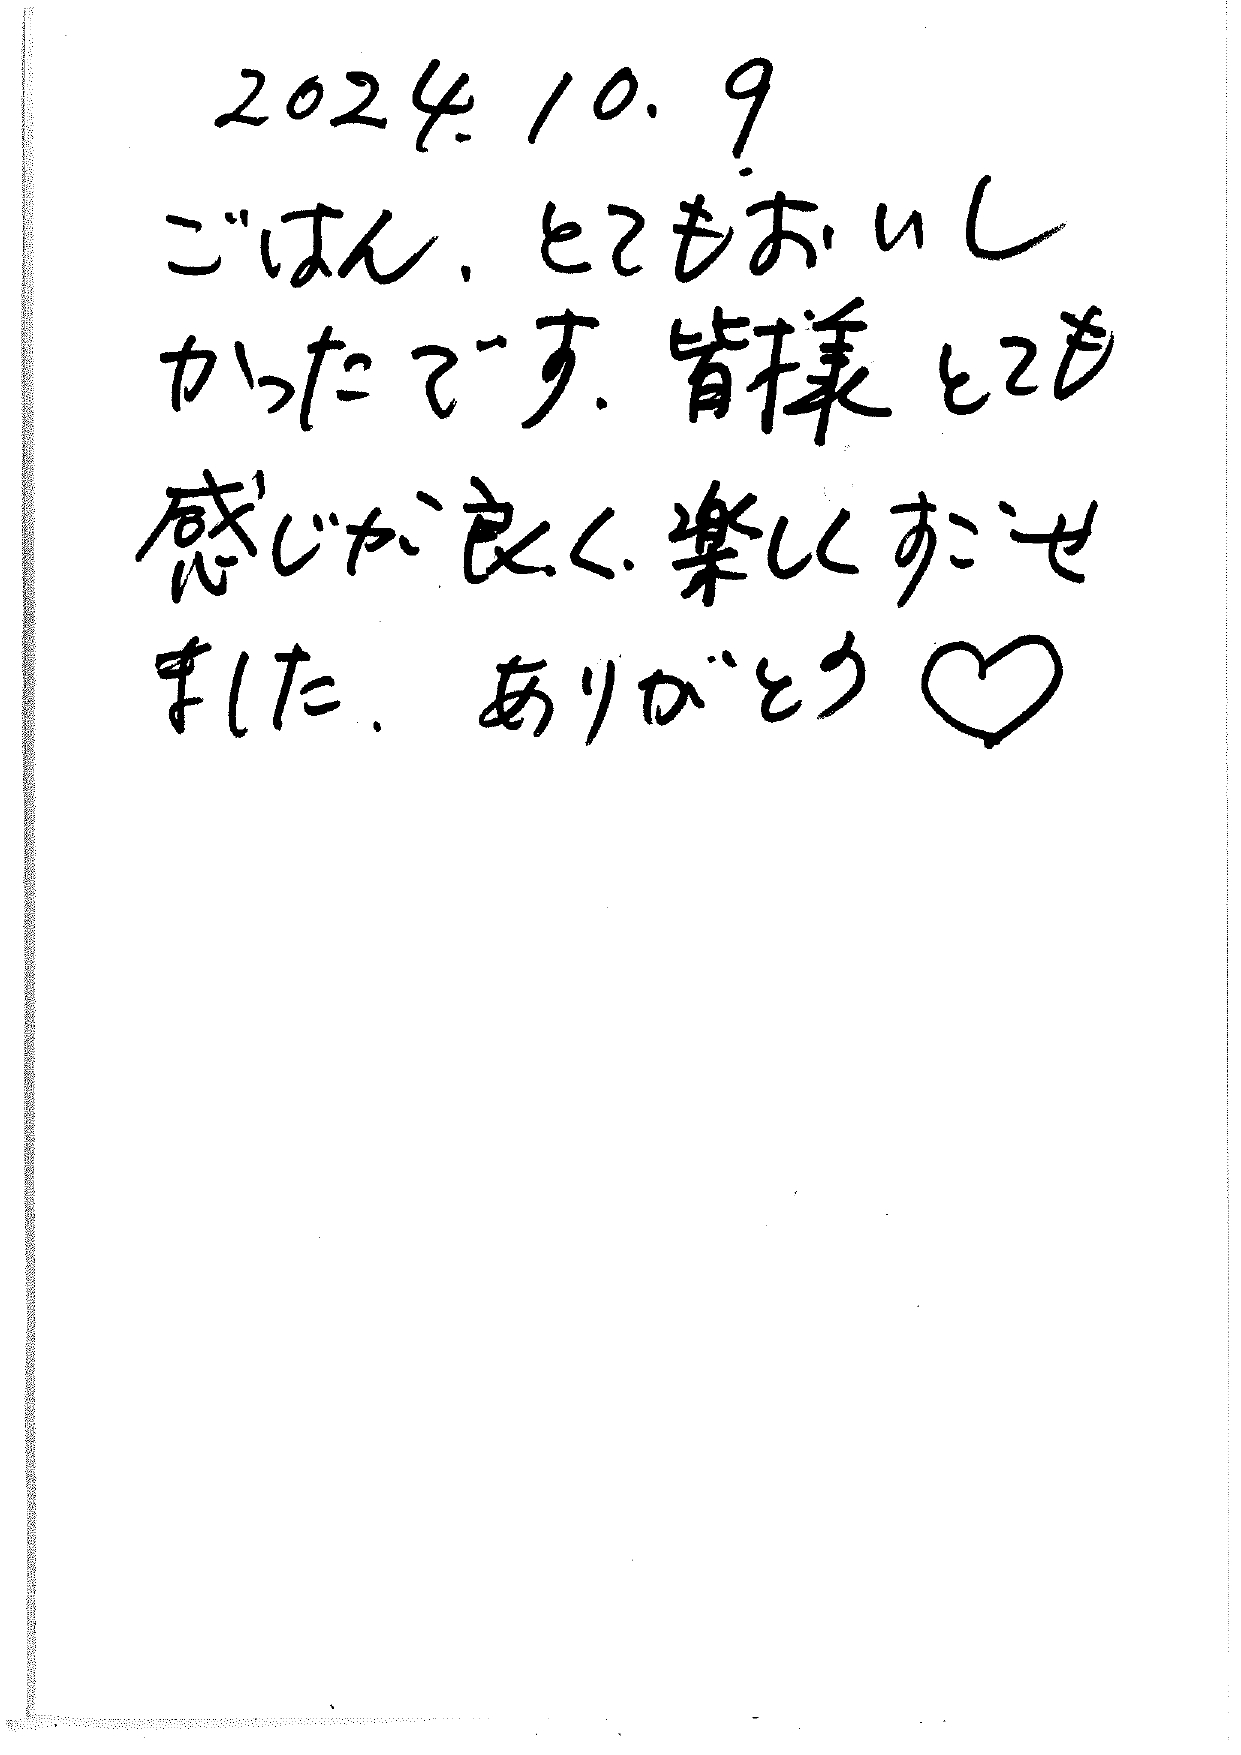 2024.10.9.
ごはん、とてもおいし
かったです。皆様とても
感じが良く、楽しくすごせ
ました。ありがとう♡